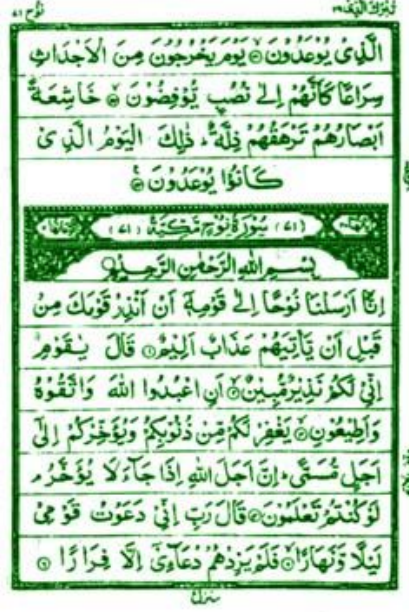 تبٰرك الذی ٢٩
نوح ٧١
الَّذِیْ یُوْعَدُوْنَ یَوْمَ یَخْرُجُوْنَ مِنَ الْاَجْدَاثِ
سِرَاعًا كَاَنَّهُمْ اِلٰی نُصُبٍ یُّوْفِضُوْنَ خَاشِعَةً
اَبْصَارُهُمْ تَرْهَقُهُمْ ذِلَّةٌ ؕ ذٰلِكَ الْیَوْمُ الَّذِیْ
كَانُوْا یُوْعَدُوْنَ
(٧١) سُوْرَةُ نُوْحٍ مَّكِّیَّةٌ (٧١)
بِسْمِ اللّٰهِ الرَّحْمٰنِ الرَّحِیْمِ
اِنَّاۤ اَرْسَلْنَا نُوْحًا اِلٰی قَوْمِهٖۤ اَنْ اَنْذِرْ قَوْمَكَ مِنْ
قَبْلِ اَنْ یَّاْتِیَهُمْ عَذَابٌ اَلِیْمٌ ۝١ قَالَ یٰقَوْمِ
اِنِّیْ لَكُمْ نَذِیْرٌ مُّبِیْنٌ ۝٢ اَنِ اعْبُدُوا اللّٰهَ وَاتَّقُوْهُ
وَاَطِیْعُوْنِ ۝٣ یَغْفِرْ لَكُمْ مِّنْ ذُنُوْبِكُمْ وَیُؤَخِّرْكُمْ اِلٰۤی
اَجَلٍ مُّسَمًّی ؕ اِنَّ اَجَلَ اللّٰهِ اِذَا جَآءَ لَا یُؤَخَّرُ ۘ
لَوْ كُنْتُمْ تَعْلَمُوْنَ ۝٤ قَالَ رَبِّ اِنِّیْ دَعَوْتُ قَوْمِیْ
لَیْلًا وَّنَهَارًا ۝٥ فَلَمْ یَزِدْهُمْ دُعَآءِیْۤ اِلَّا فِرَارًا ۝٦
منزل